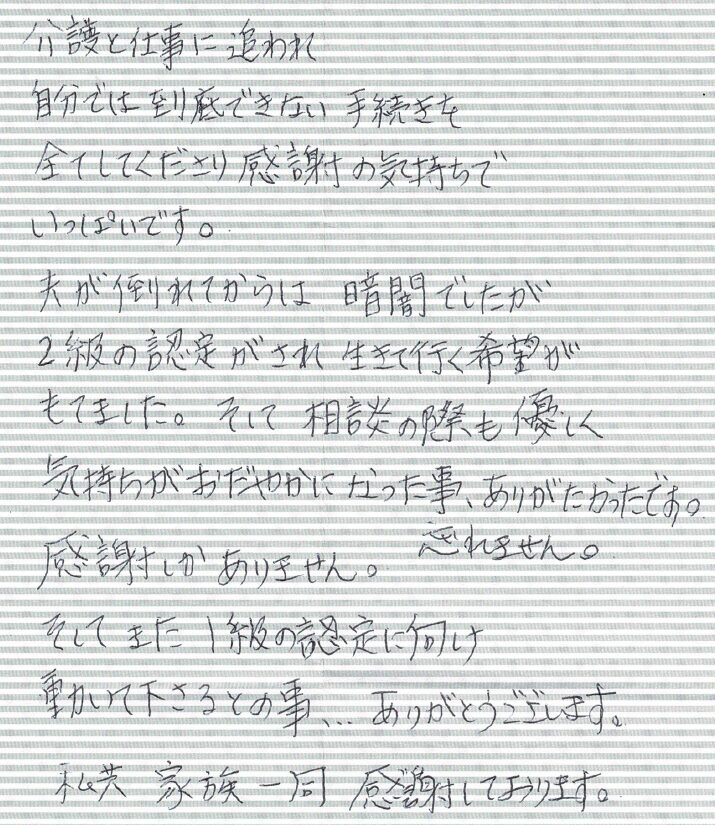 介護と仕事に追われ
自分では到底できない 手続きを
全てしてくださり感謝の気持ちで
いっぱいです。
夫が倒れてからは 暗闇でしたが
2級の認定がされ 生きて行く希望が
もてました。そして 相談の際も優しく
気持ちがおだやかになった事、ありがたかったです。
忘れません。
感謝しかありません。
そしてまた1級の認定に向け
動いて下さるとの事、… ありがとうございます。
私共 家族一同 感謝しております。